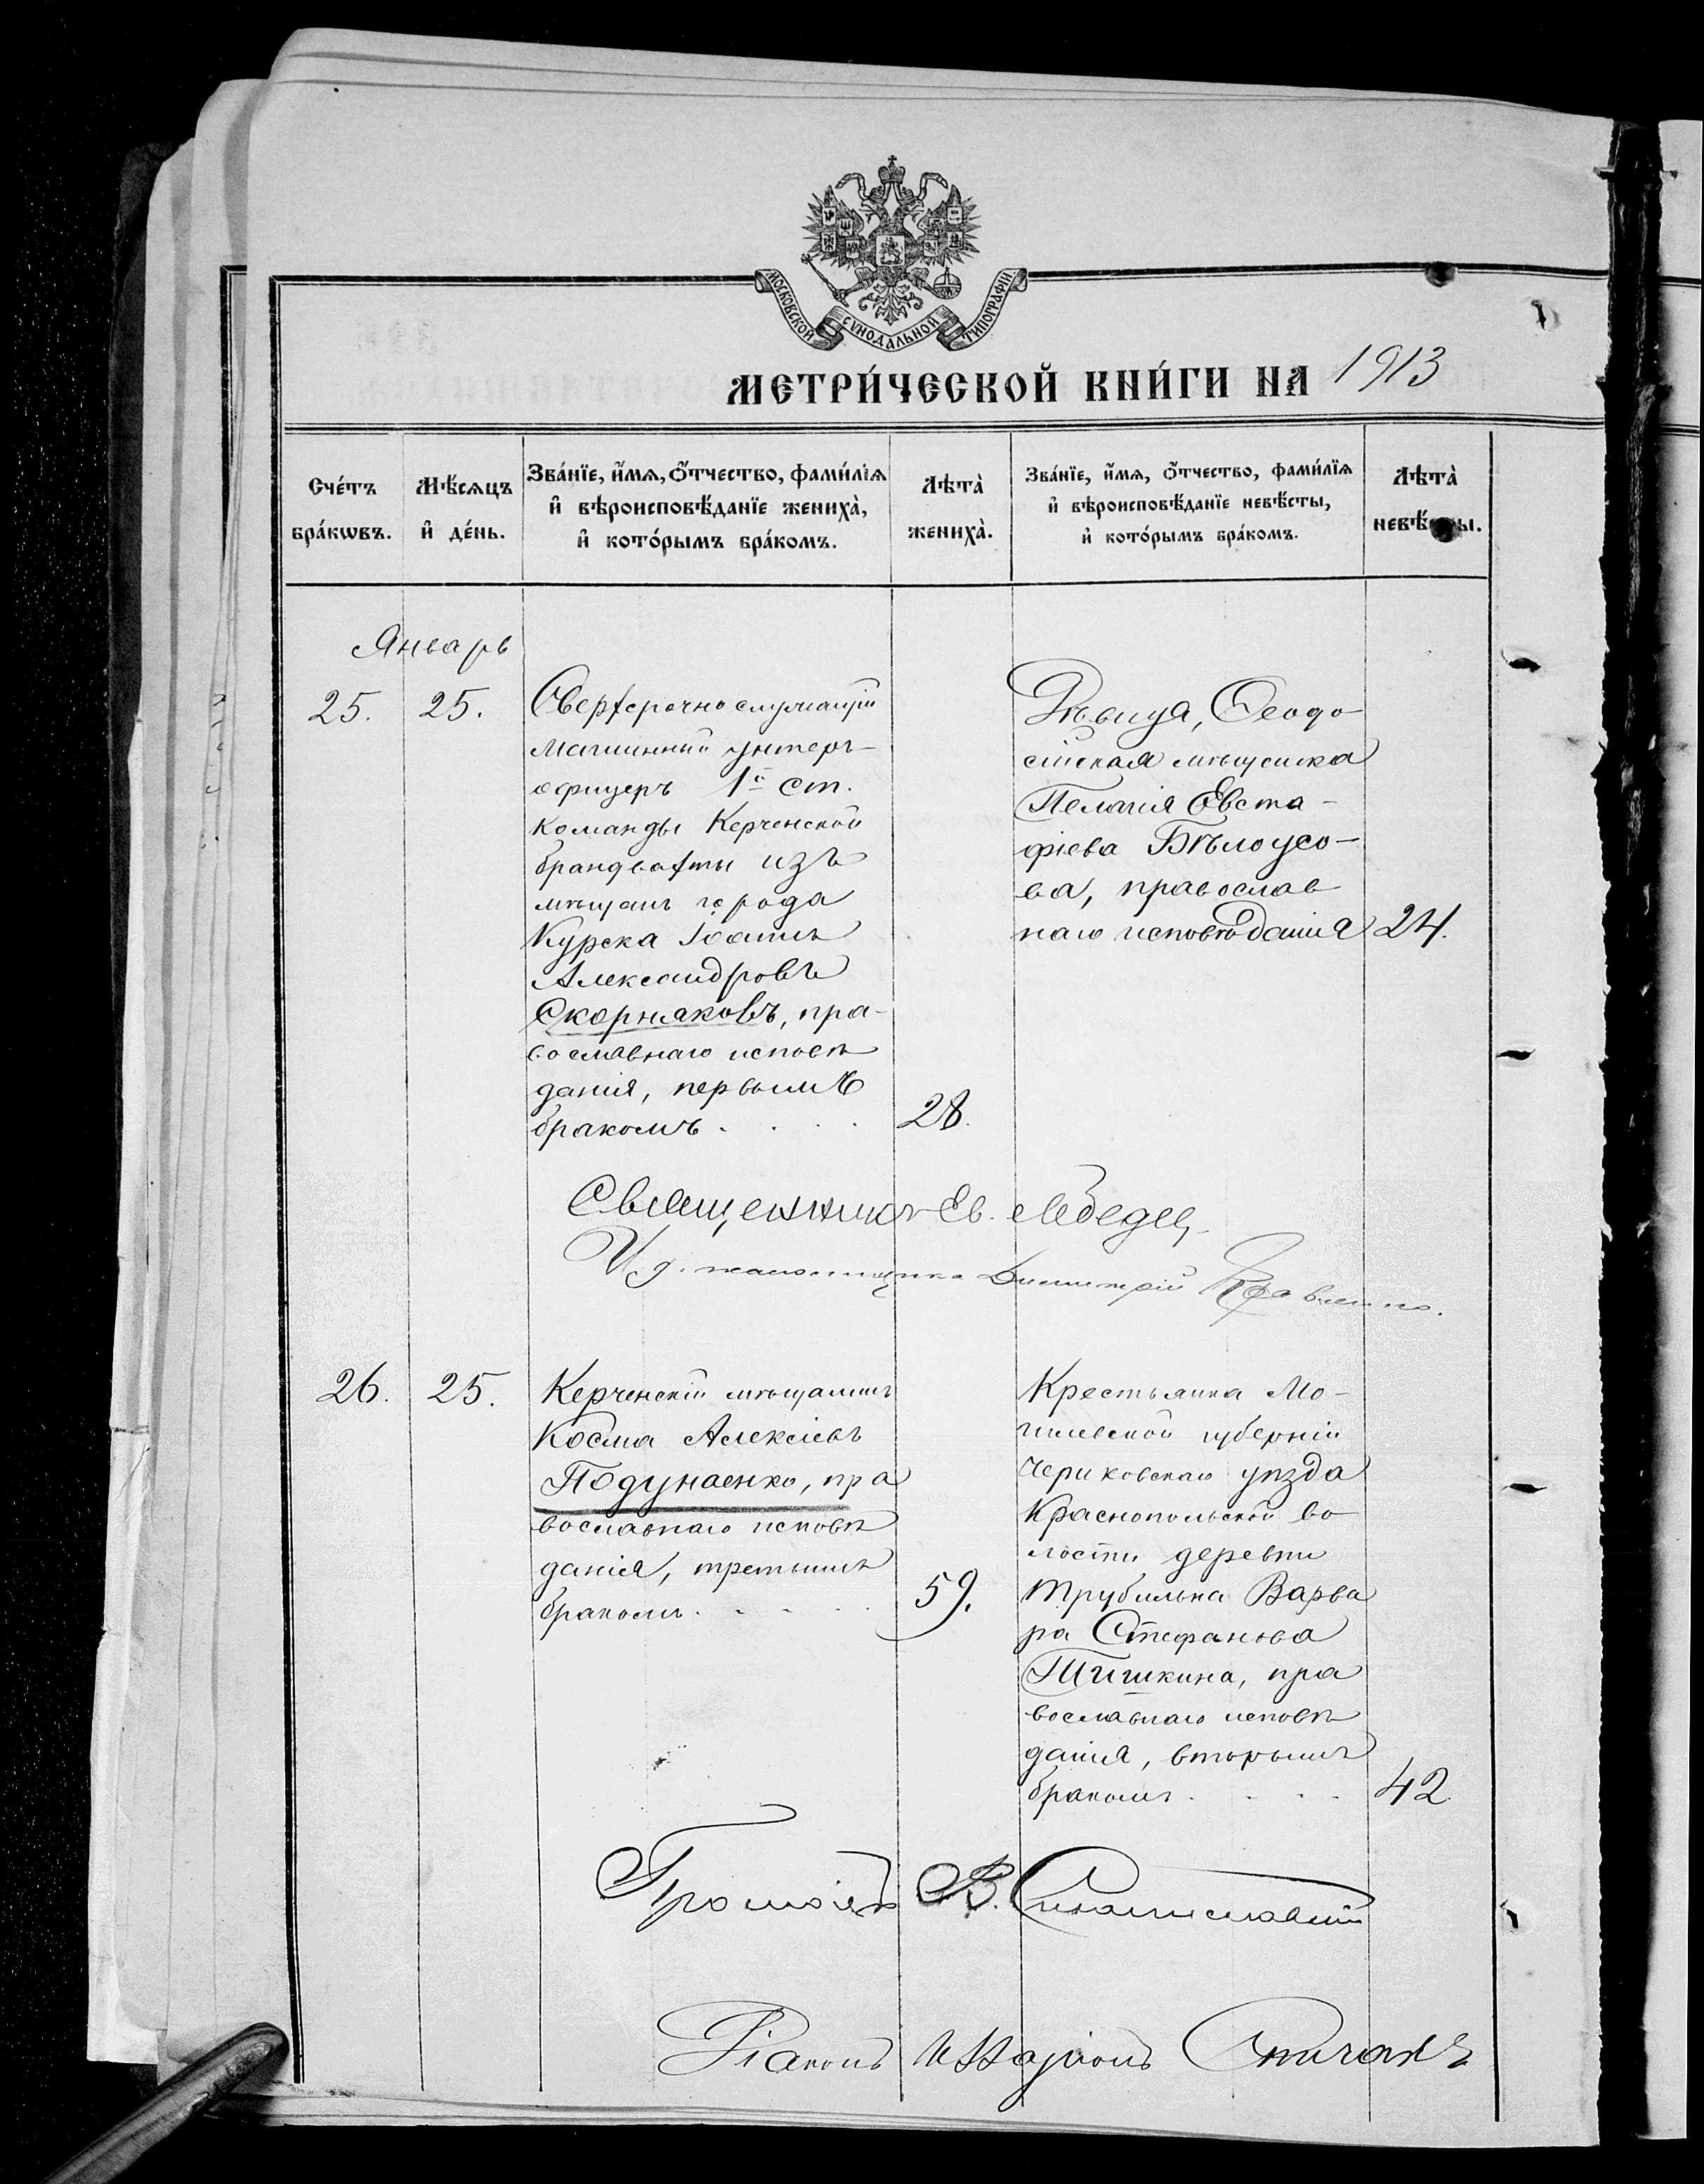 МОСКОВСКОЙ СѴНОДАЛЬНОЙ ТИПОГРАФІИ
МЕТРИ́ЧЕСКОЙ КНИ́ГИ НА 1913
Сче́тъ бра́кѡвъ.
Мѣ́сѧцъ и҆ де́нь.
Зва́нїе, и҆́мѧ, ѻ҆́тчество, фамѝлїѧ
и҆ вѣроисповѣ́данїе жениха̀,
и҆ кото́рымъ бра́комъ.
Лѣта̀ жениха̀.
Зва́нїе, и҆́мѧ, ѻ҆́тчество, фамѝлїѧ
и҆ вѣроисповѣ́данїе невѣ́сты,
и҆ кото́рымъ бра́комъ.
Лѣта̀
Январь
25. 25.
Сверхсрочнослужащій
машинный унтеръ-
офицеръ 1й ст.
команды Керченской
брандвахты изъ
мѣщанъ города
Курска Іоаннъ
Александровъ
Скорняковъ, пра-
вославнаго исповѣ
данія, первымъ
бракомъ . . . .
28.
Дѣвица, Ѳеодо-
сійская мѣщанка
Пелагія Евста-
фіева Бѣлоусо-
ва, православ
наго исповѣданія
24.
Священникъ Ев. Лебедев
И. д. псаломщика Димитрій Кравченко.
26. 25.
Керченскій мѣщанинъ
Косма Алексіевъ
Подунаенко, пра
вославнаго исповѣ
данія, третьимъ
бракомъ . . . .
59.
Крестьянка Мо-
гилевской губерніи
Чериковскаго уѣзда
Краснопольской во
лости деревни
Трубильна Варва
ра Стефанова
Тишкина, пра
вославнаго исповѣ
данія, вторымъ
бракомъ . . . .
42
В.
Діаконъ